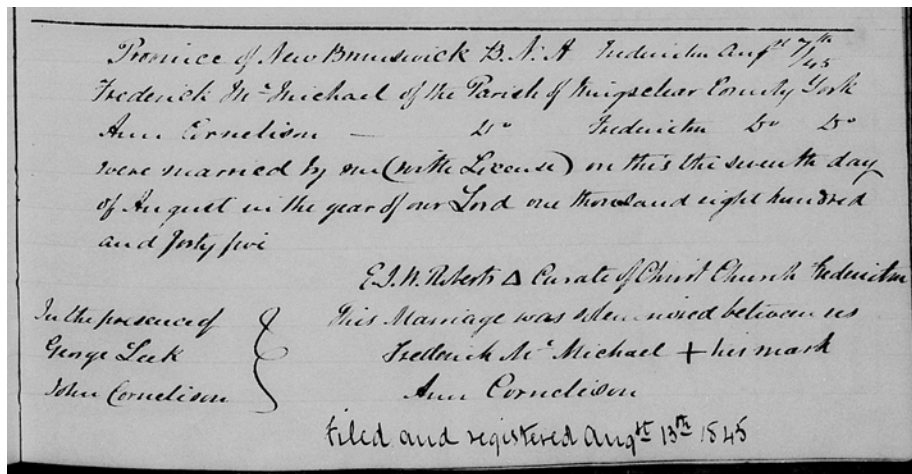 Province of New Brunswick B. N. A Fredericton Augst 7th/45
Frederick Mc Michael of the Parish of Kingsclear County York
Ann Cornelison — Do Fredericton Do Do
were married by me (with License) on this the seventh day
of August in the year of our Lord one thousand eight hundred
and forty five
E. J. W. Roberts Δ Curate of Christ Church Fredericton
In the presence of
George Leek
John Cornelison
This Marriage was solemnized between us
Frederick Mc Michael + his mark
Ann Cornelison
Filed and registered Augst 13th 1845